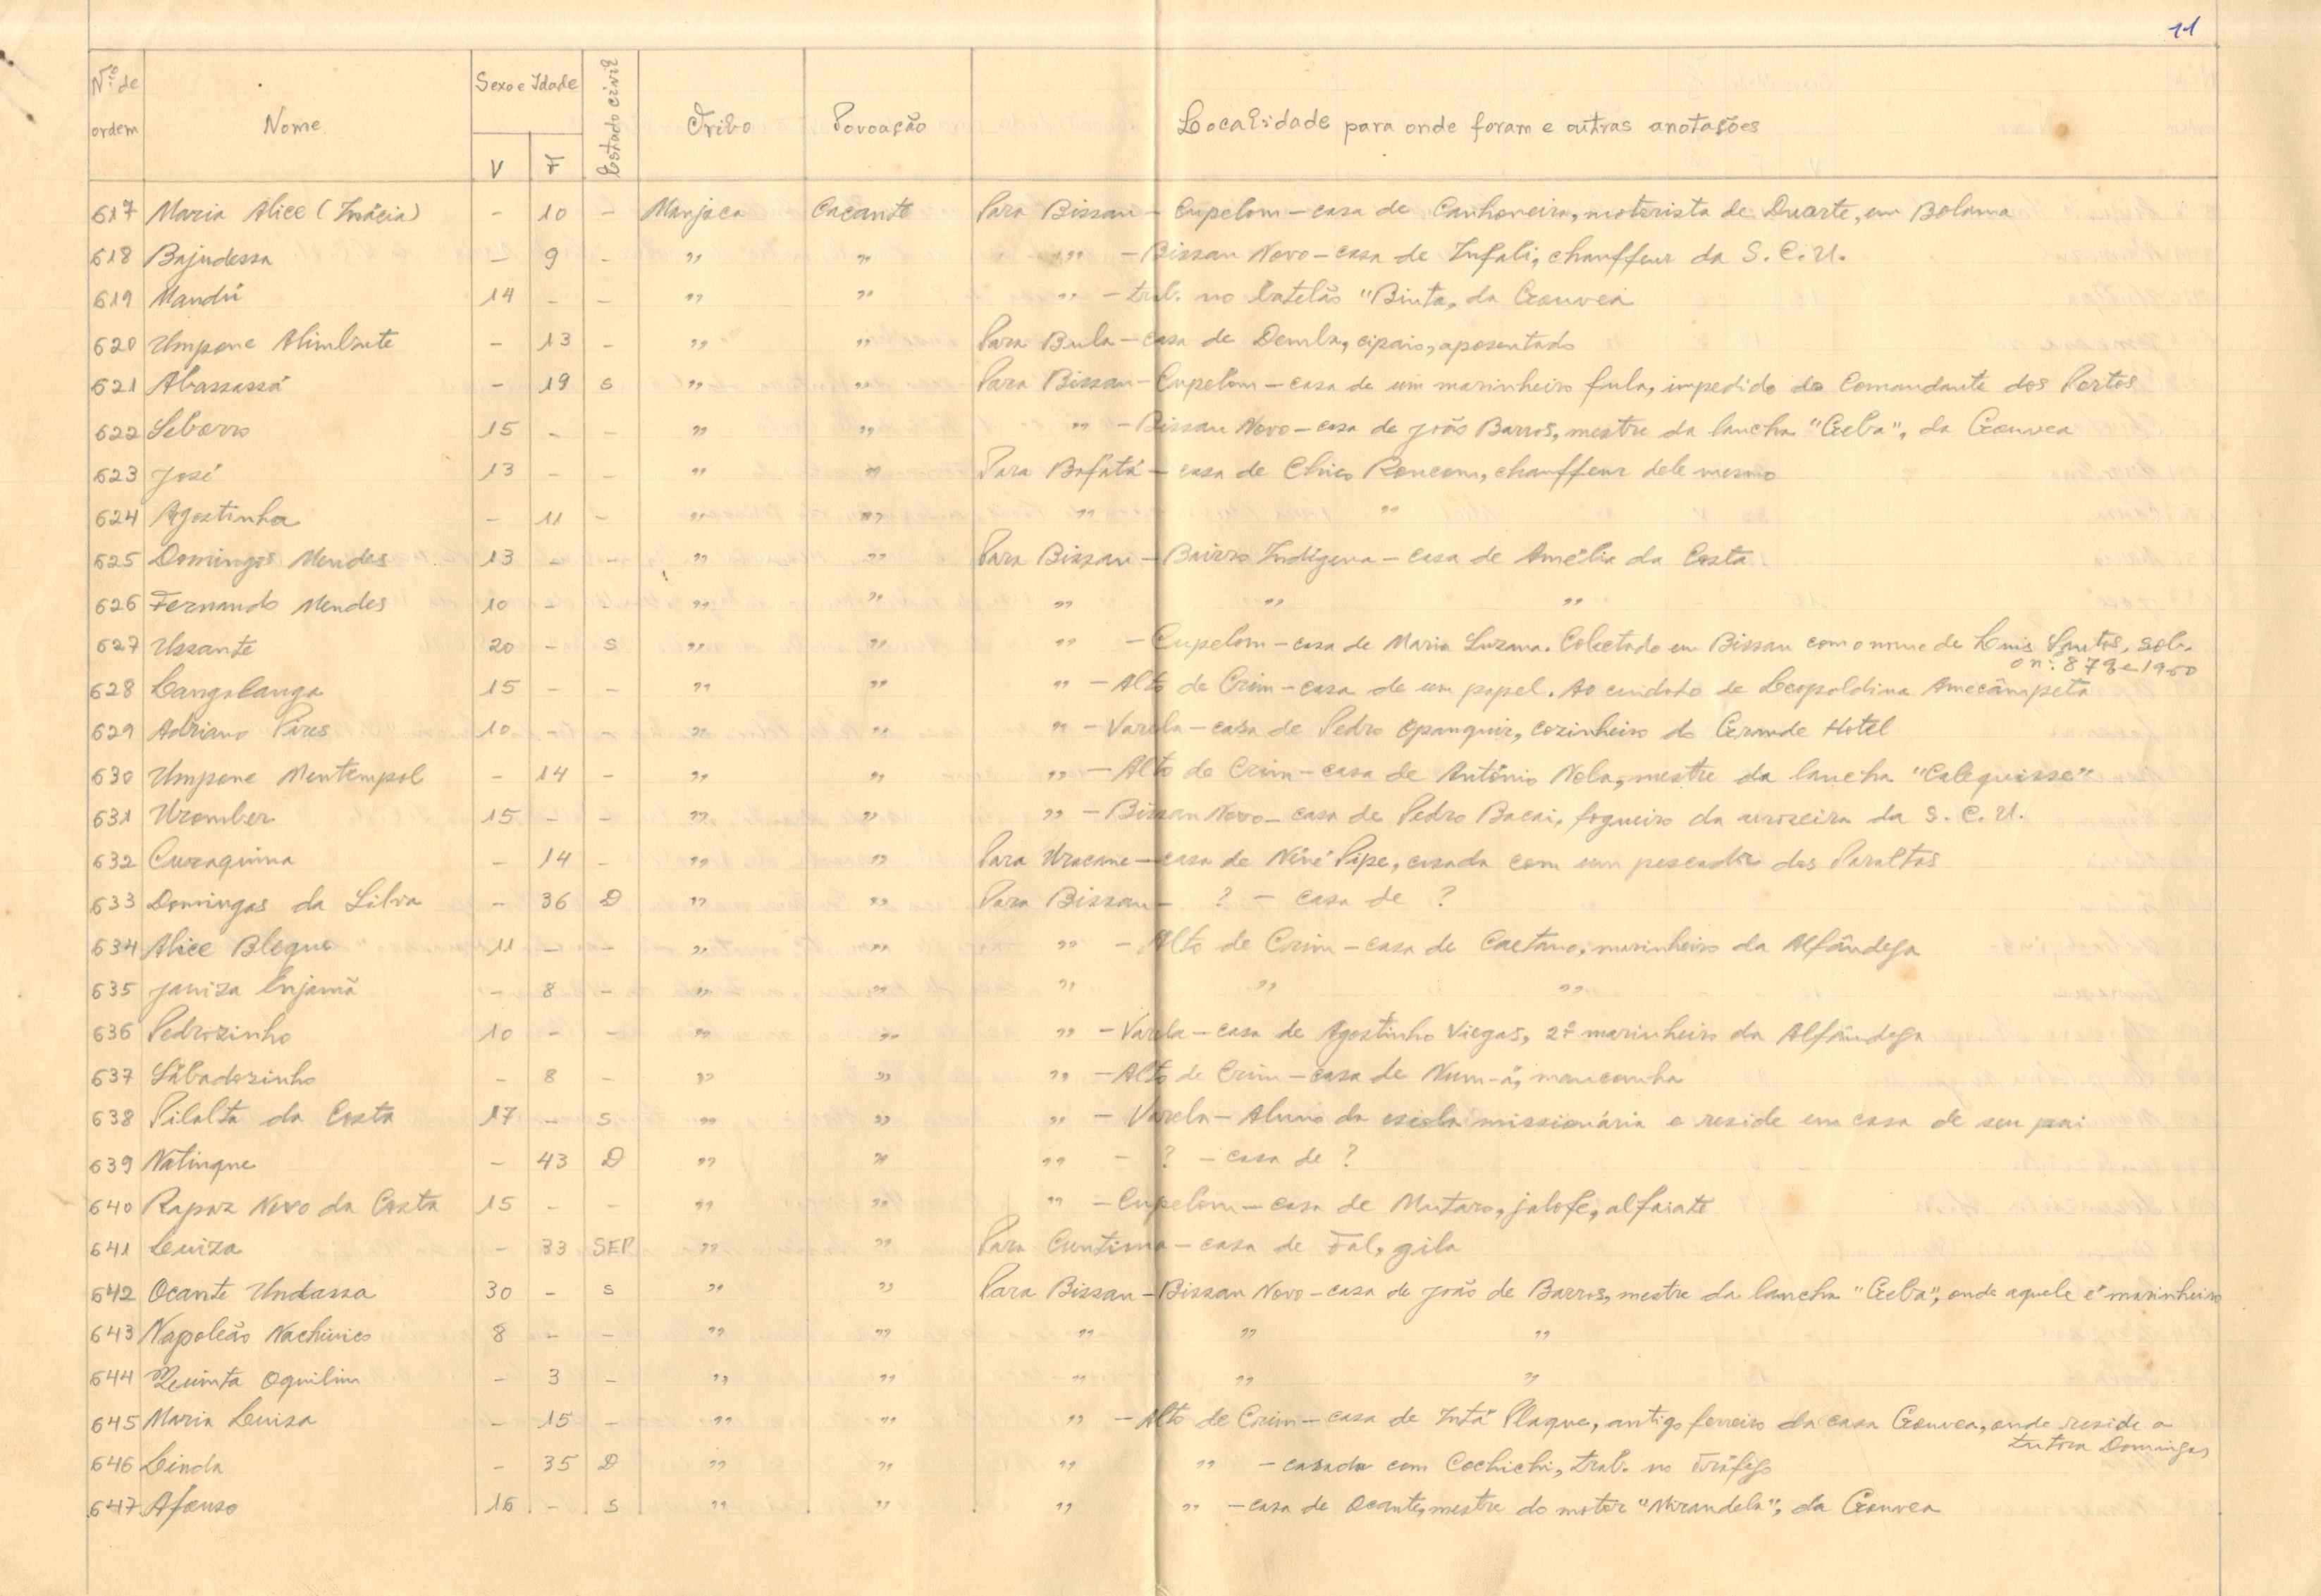 11
Nº de ordem Nome Sexo e Idade V F Estado civil Tribo Povoação Localidade para onde foram e outras anotações
617 Maria Alice (Inácia) - 10 - Manjaca Cacante Para Bissau - Cupelom - casa de Canhoneira, motorista de Duarte, em Bolama
618 Bajudessa - 9 - " " " - Bissau Novo - casa de Infali, chauffeur da S. C. U.
619 Mandú 14 - - " " " - trab. no batelão "Binta, da Gouveia
620 Umpone - 13 - " " Para Bula - casa de Demba, cipaio, aposentado
621 Abassassá - 19 s " " Para Bissau - Cupelom - casa de um marinheiro fula, impedido do Comandante dos Portos
622 15 - - " " " - Bissau Novo - casa de João Barros, mestre da lancha "Geba", da Gouvea
623 José 13 - - " " Para Bafatá - casa de Chico chauffeur dele mesmo
624 Agostinha - 11 - " " " "
625 Domingos Mendes 13 - - " " Para Bissau - Bairro Indígena - casa de Amélia da Costa
626 Fernando Mendes 10 - - " " " " "
627 Ussante 20 - s " " " - Cupelom - casa de Maria Colectado em Bissau com o nome de Luis Santos, sob.
o nº 878 e 1950
628 Langolanga 15 - - " " " - Alto de Crim - casa de um papel. Ao cuidado de Leopoldina
629 Adriano Pires 10 - - " " " - Varela - casa de Pedro Opanquir, cozinheiro do Grande Hotel
630 Umpone Mentempol - 14 - " " " - Alto de Crim - casa de António Nola, mestre da lancha "Calequisse"
631 Uromber 15 - - " " " - Bissau Novo - casa de Pedro Bacai, fogueiro da da S. C. U.
632 Curaquina - 14 - " " Para Uracane - casa de Néné Pipe, casada com um pescador dos
633 Domingas da Silva - 36 D " " Para Bissau - ? - casa de ?
634 Alice Bleque 11 - - " " " - Alto de Crim - casa de Caetano, marinheiro da Alfândega
635 Janiza Enjamã - 8 - " " " " "
636 Pedrozinho 10 - - " " " - Varela - casa de Agostinho Viegas, 2º marinheiro da Alfândega
637 Sábadozinho - 8 - " " " - Alto de Crim - casa de mancanha
638 Pilalta da Costa 17 - s " " " - Varela - Aluno da escola missionária e reside em casa de seu pai
639 Natinque - 43 D " " " - ? - casa de ?
640 Rapaz Novo da Costa 15 - - " " " - Cupelom - casa de Mutaro, jalofe, alfaiate
641 Luiza - 33 SEP. " " Para Cuntima - casa de Fal, gila
642 Ocante Undassa 30 - s " " Para Bissau - Bissau Novo - casa de João de Barros, mestre da lancha "Geba", onde aquele é marinheiro
643 Napoleão Nachinico 8 - - " " " " "
644 Oquilim - 3 - " " " " "
645 Maria Luisa - 15 - " " " - Alto de Crim - casa de Intá Plaque, antigo ferreiro da casa Gouvea, onde reside a
tutora Domingas
646 Linda - 35 D " " " " - casada com Cochichi, trab. no Tráfego
647 Afonso 16 - s " " " " - casa de Ocante, mestre do motor "Mirandela", da Gouvea